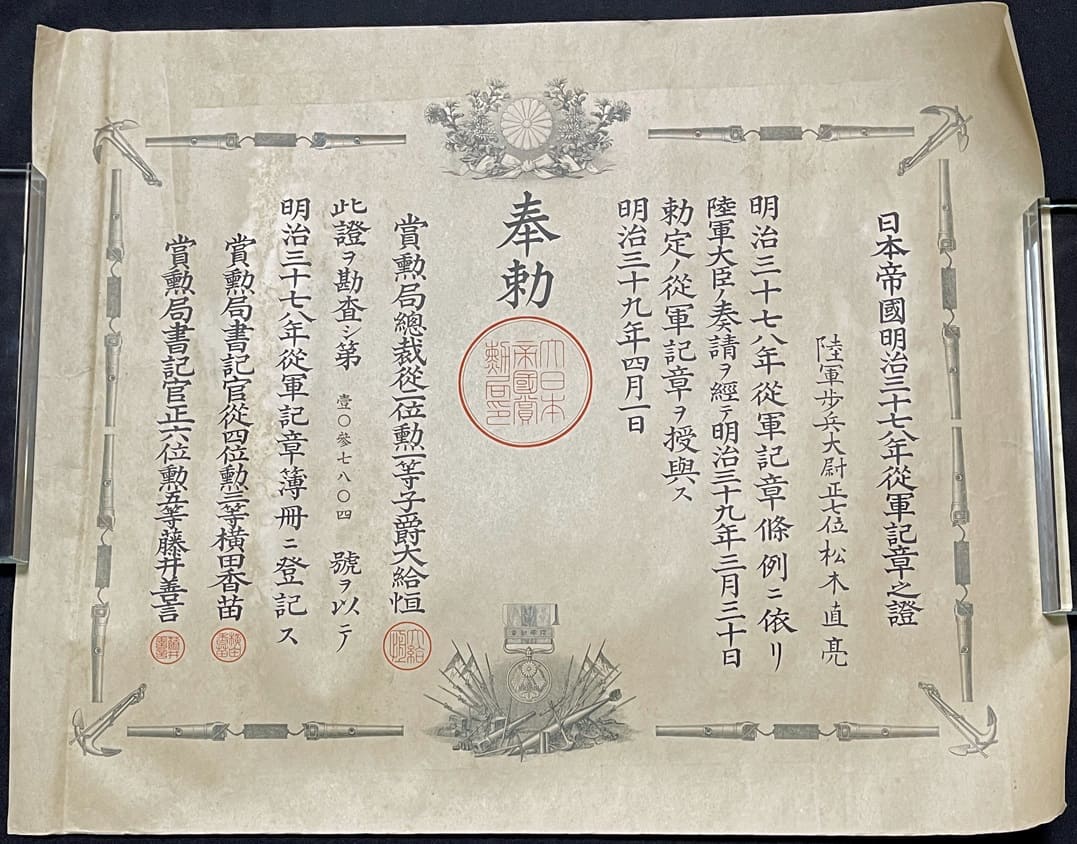 日本帝國明治三十七八年從軍記章之證
陸軍歩兵大尉正七位松木直亮
明治三十七八年從軍記章條例ニ依リ
陸軍大臣ノ奏請ヲ經テ明治三十九年三月三十日
勅定ノ從軍記章ヲ授與ス
明治三十九年四月一日
奉勅
大日本
帝國賞
勲局印
賞勲局總裁從二位勲一等子爵大給恒
此證ヲ勘査シ第壹〇參七八〇四號ヲ以テ
明治三十七八年從軍記章簿冊ニ登記ス
賞勲局書記官從四位勲三等横田香苗
賞勲局書記官正六位勲五等藤井善言